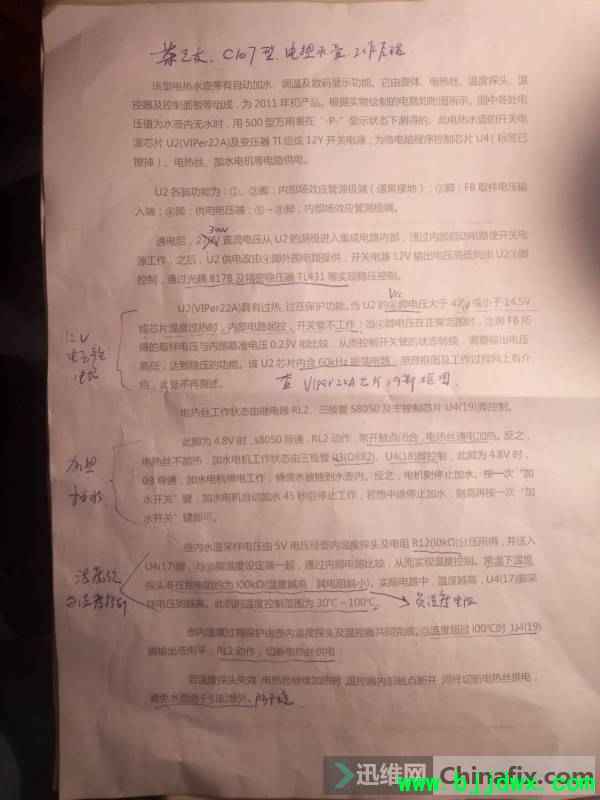 茶之友、C107型、电热水壶工作原理
该型电热水壶带有自动加水、调温及数码显示功能。它由壶体、电热丝、温度探头、温
控器及控制面板等组成，为2011年初产品。根据实物绘制的电路如附图所示。图中各处电
压值为水壶内无水时，用500型万用表在“-P-”显示状态下测得的。此电热水壶的开关电
源芯片U2(VIPer22A)及变压器TL组成12V开关电源，为微电脑程序控制芯片U4（标签已
擦掉）、电热丝、加水电机等电路供电。
U2各脚功能为：①、②脚：内部场效应管源极端（通常接地）；③脚：FB取样电压输
入端；④脚：供电电压端；⑤~⑧脚：内部场效应管漏极端。
300V
通电后，直流电压从U2的漏极进入集成电路内部，通过内部启动电路使开关电
源工作，之后，U2供电改由④脚外围电路提供，开关电源12V输出电压高低则由U2③脚
控制，通过光耦817B及精密稳压器TL431等实现稳压控制。
Vcc
U2(VIPer22A)具有过热、过压保护功能。当U2的④脚电压大于42V或小于14.5V
或芯片温度过热时，内部电路起控，开关管不工作；当④脚电压在正常范围时，③脚FB所
得的取样电压与内部基准电压0.23V相比较，从而控制开关管的状态转换，调整输出电压
高低，达到稳压的功能。该U2芯片内含60kHz振荡电路，原理框图及工作过程网上有介
绍，此处不再赘述。
查VIPer22A芯片内部框图
12V
电源
电热丝工作状态由继电器RL2、三极管S8050及主控制芯片U4(19)脚控制。
此脚为4.8V时，s8050导通，RL2动作，常开触点闭合，电热丝通电加热。反之，
电热丝不加热。加水电机工作状态由三极管Q3(D882)、U4(18)脚控制，此脚为4.8V时，
Q3导通，加水电机得电工作，将饮水被抽到水壶内。反之，电机则停止加水。按一次“加
水开关”键，加水电机自动加水45秒后停止工作，若想中途停止加水，则需再按一次“加
水开关”键即可。
加热
抽水
壶内水温采样电压由5V电压经壶内温度探头及电阻R1200kΩ分压所得，并送入
U4(17)脚，与水温温度设定值一起，通过内部电路比较，从而实现温度控制。常温下温度
探头实在是阻值约为100kΩ(温度越高，其电阻越小)，实际电路中，温度越高，U4(17)脚采
样电压则越高。此壶的温度控制范围为30℃~100℃。
负温度电阻
壶内温度过高保护由壶内温度探头及温控器共同完成。当温度超过100℃时，U4(19)
脚输出低电平，RL2动作，切断电热丝供电；
若温度探头失效，电热丝继续加热时，温控器内部触点断开，同样切断电热丝供电，
避免水壶由于引起意外。防干烧
迅维网 Chinafix.com
www.bjjdwx.com